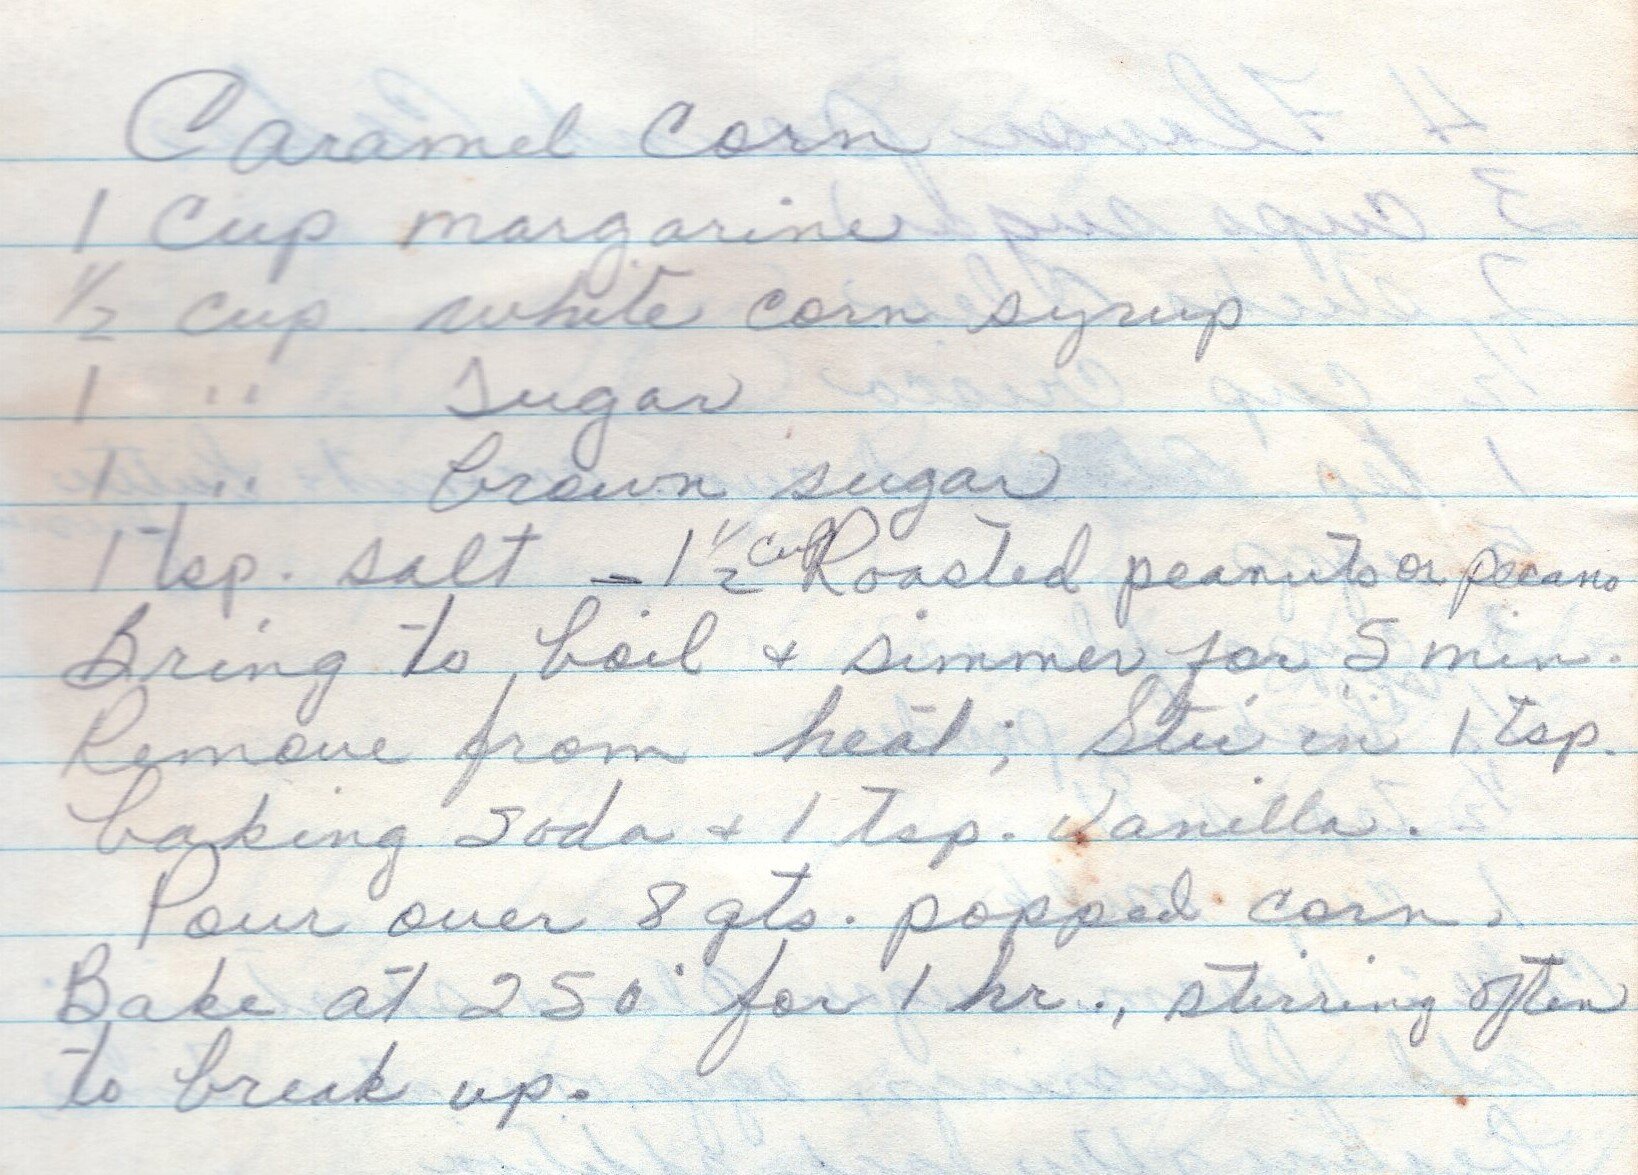 Caramel Corn
1 Cup margarine
1/2 cup white corn syrup
1 " Sugar
1 " brown sugar
1 tsp. salt - 1 1/2 cup Roasted peanuts or pecans
Bring to boil & simmer for 5 min.
Remove from heat; Stir in 1 tsp.
baking soda & 1 tsp. Vanilla.
Pour over 8 qts. popped corn.
Bake at 250° for 1 hr., stirring often
to break up.